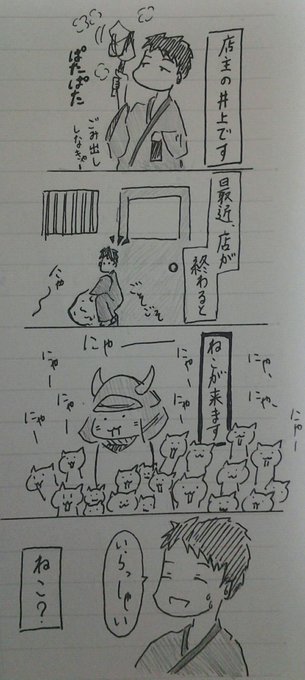 店主の井上です
ぱたぱた
ごみ出し
しなきゃー
最近、店が
終わると
ごそごそ
にゃー
ねこが来ます
にゃー
にゃー
にゃー
にゃー
にゃー
にゃ、
にゃ、
にゃー
いらっしゃい
ねこ?